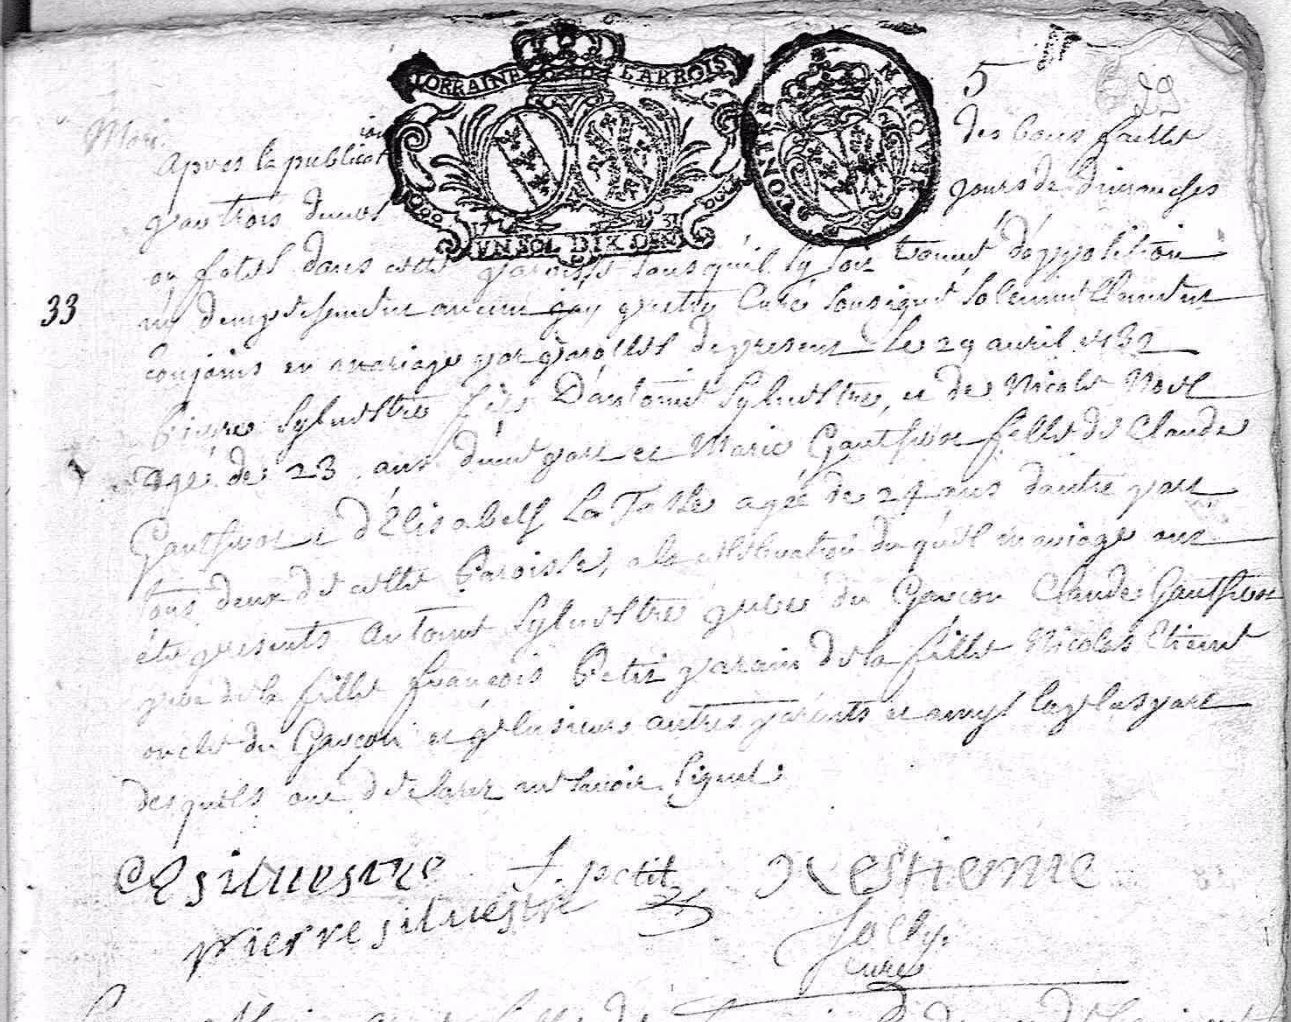 LORRAINE ET BARROIS
CONTRE MARQUE
17 31
UN SOL DIX DEN
5
Mari
apres la publication des bans faitte
par trois jours de dimanches
ou fetes dans cette paroisse sans qu'il sy soit trouvé d'opposition
ny d'empechement aucun gay Curé soussigné solemnellement
conjoins en mariage par parolles de present le 29 avril 1732
33
Pierre Sylvestre fils D'antoine Sylvestre, et de Nicole Noel
agé de 23 ans d'une part et Marie Gauthier fille de Claude
Gauthier et d'Élisabeth La Taxe agée de 24 ans d'autre part
tous deux de cette Paroisse, a la celebration duquel mariage ont
été presents antoine Sylvestre pere du Garçon Claude Gauthier
pere de la fille françois Petit parain de la fille Nicolas Etienne
oncle du Garçon et plusieurs autres parents et amys la plus part
desquels ont declarez ne savoir signer.
silvestre f. petit N estienne
pierre silvestre
Jolly.
curé